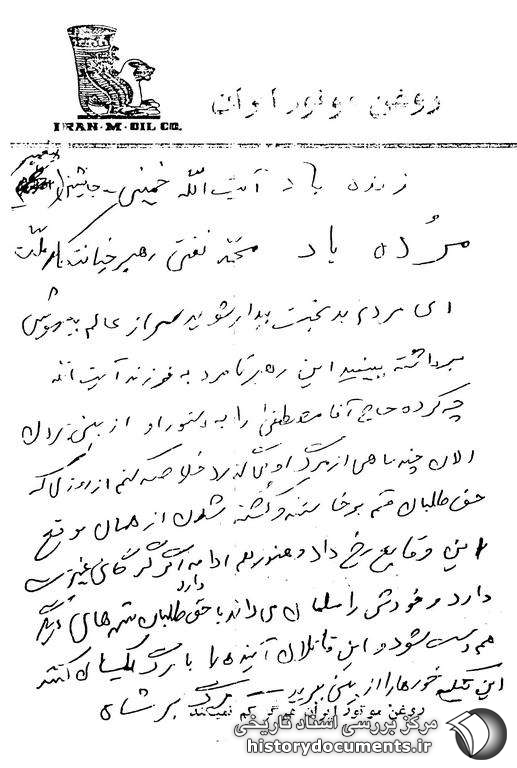 IRAN-M-OIL CO.
روغن موتور ایران
زنده باد آیت الله خمینی - جانشین پیغمبر
مرُده باد محمّد نفتی رهبر خیانتکار ملّت
ای مردم بدبخت بیدار شوید سر از عالم بیهوشی
برداشته ببینید این رهبر نامرد به فرزند آیت الله
چه کرده حاج آقا مصطفی را به دستور او از بین بردن
الان چند ماهی از مرگ او می گذرد خلاصه کنم از روزی که
حق طلبان قم برخاستند و کشته شدن از همان موقع
این وقایع رخ داد و هنوز هم ادامه دارد اگر کسی غیرت
دارد و خودش را مسلمان می داند با حق طلبان شهرهای دیگر
هم دست شود و این قاتلان را با مرگ یکسان کنند
این تخم خورها را از بین ببرید -- مرگ بر شاه
روغن موتور ایران نمیگم کم نمیکند
مرکز بررسی اسناد تاریخی
historydocuments.ir